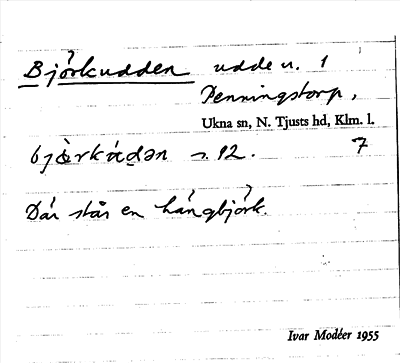 Björkudden udde n. 1
Penningstorp,
Ukna sn, N. Tjusts hd, Klm. l.
bjö̀rkúdən s. 92. 7
Där står en hängbjörk.
Ivar Modéer 1955